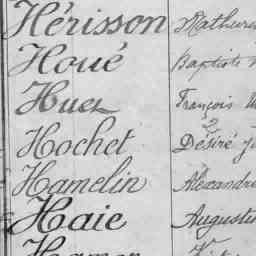 Hérisson Mathurin
Houé Baptiste
Huez François
Hochet Désiré
Hamelin Alexandre
Haie Augustin